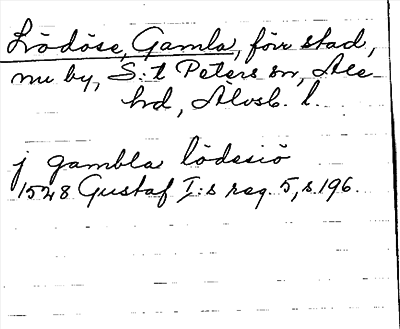 Lödöse, Gamla, förr stad,
nu by, S:t Peters sn, Ale
hd, Älvsb. l.
j gambla lödesiö
1528 Gustaf I:s reg. 5, s. 196.